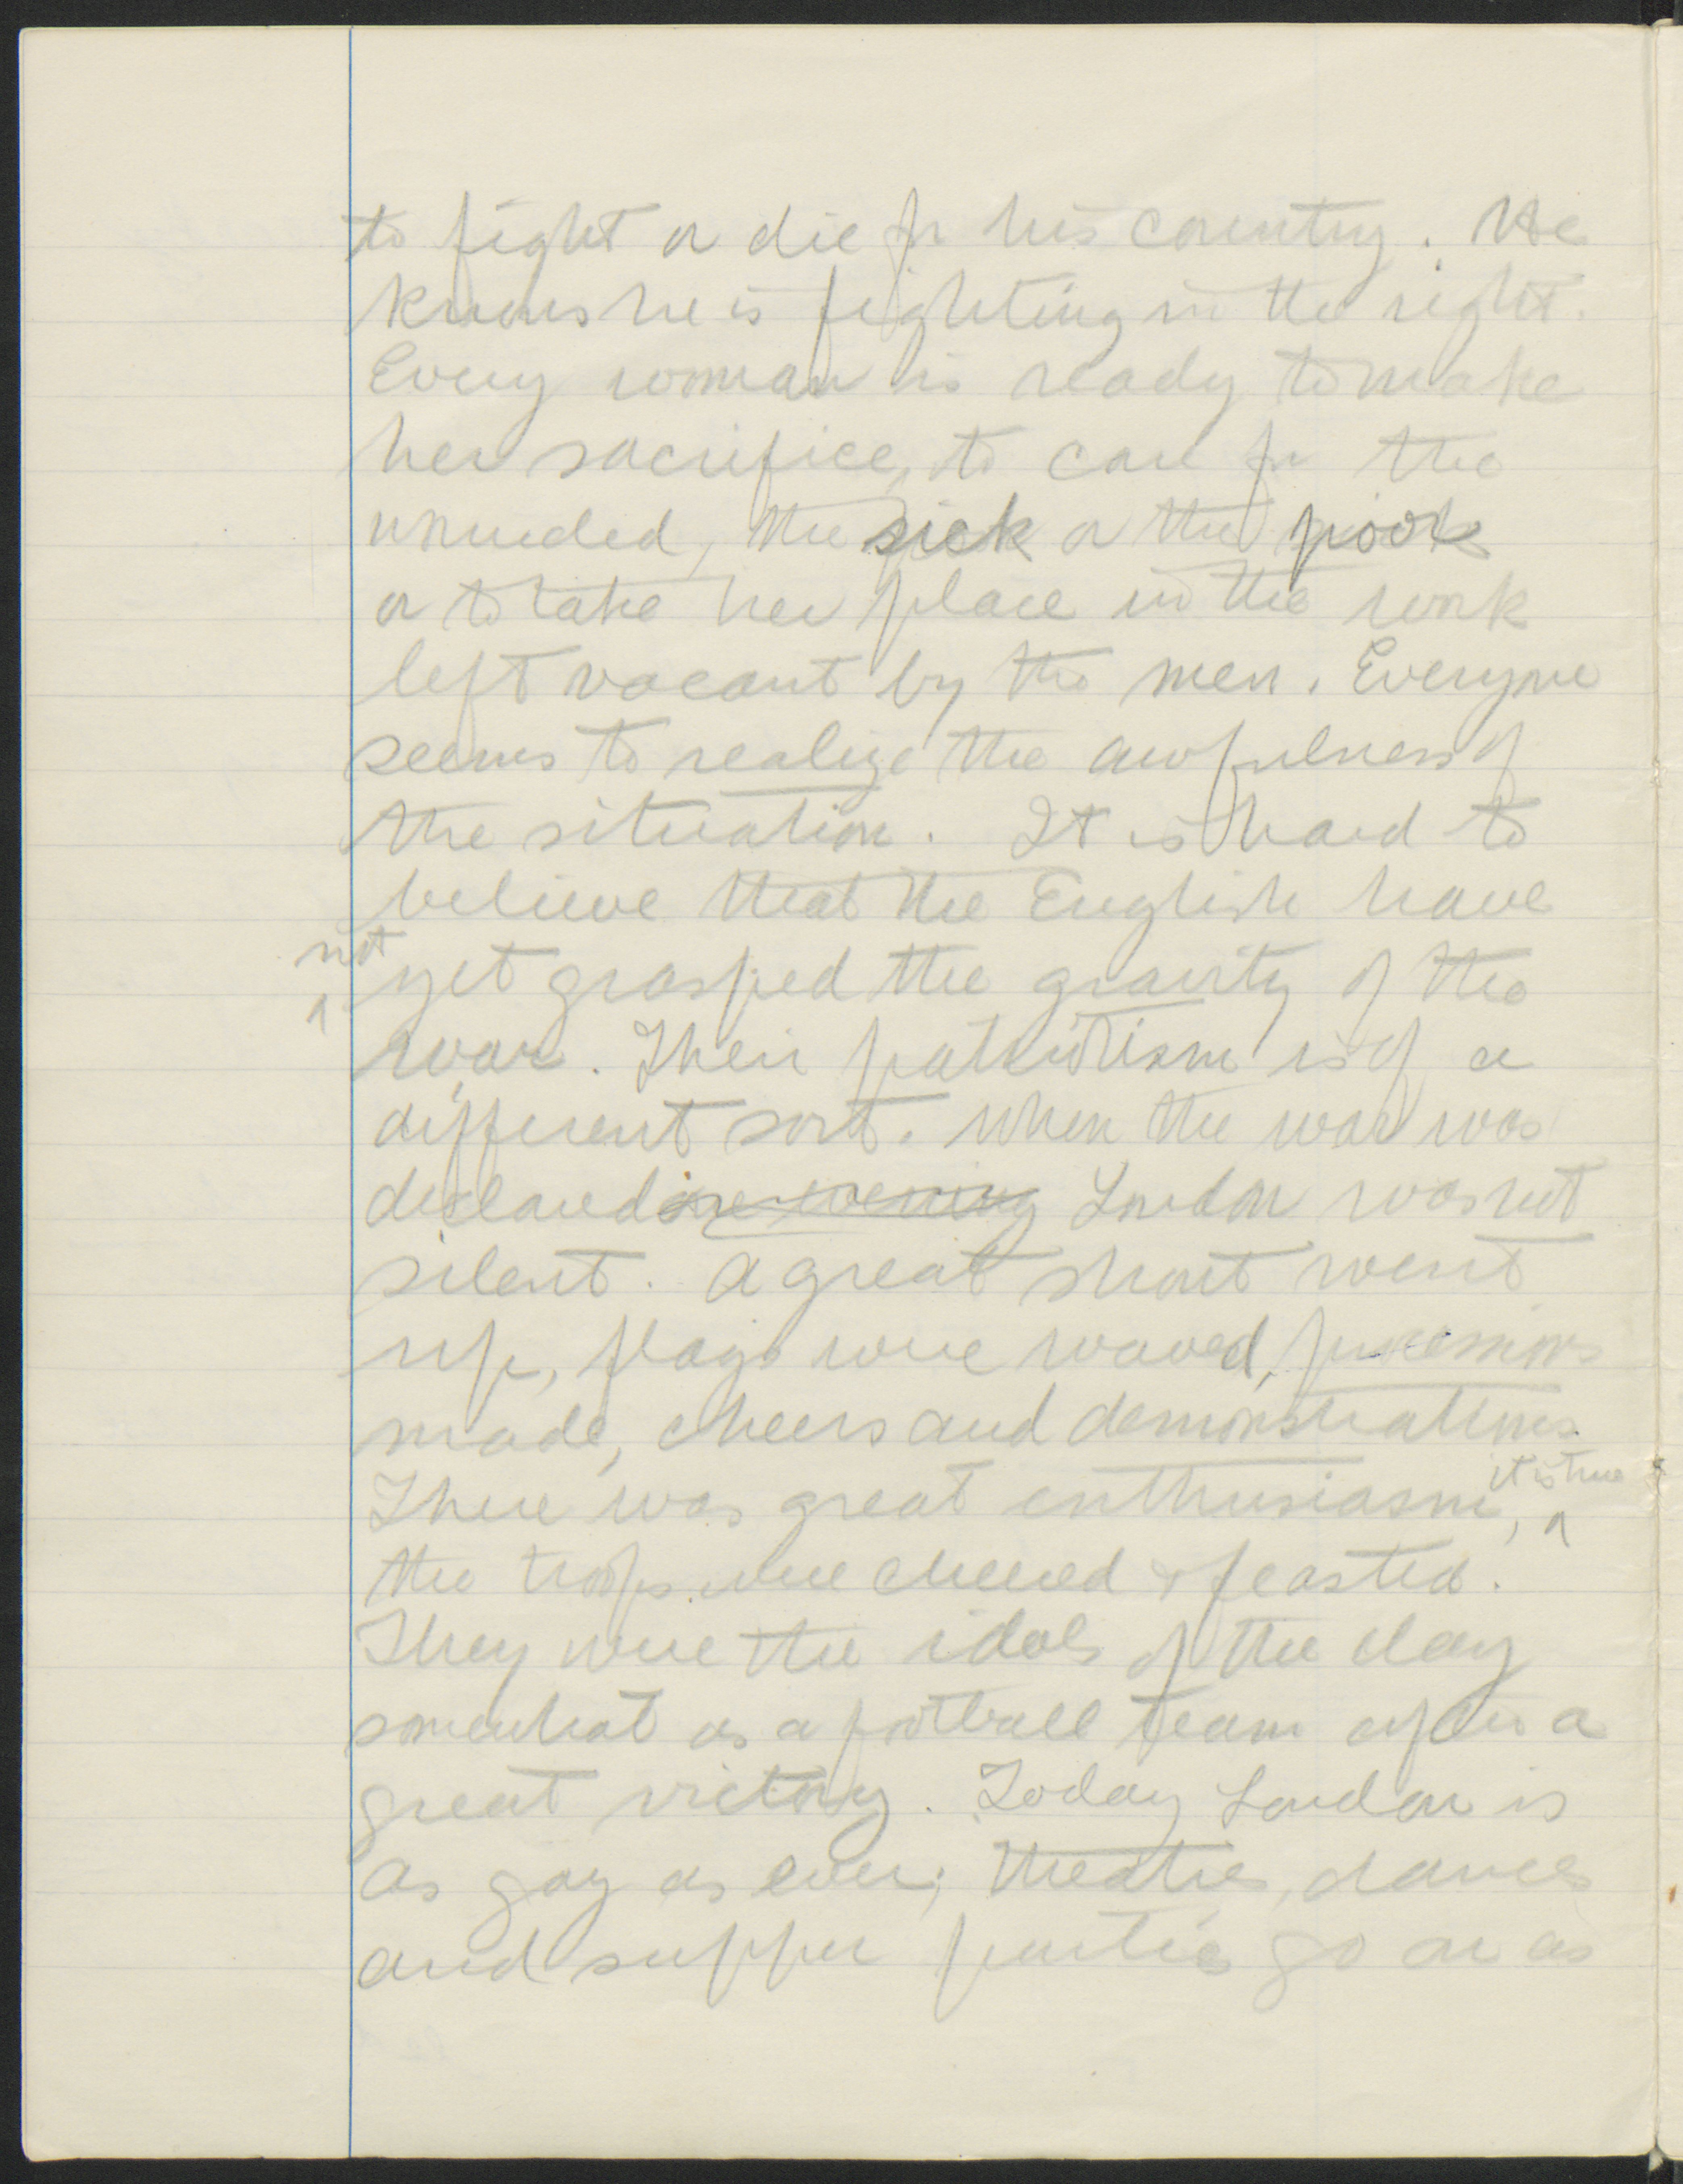 to fight or die for his country. He
knows he is fighting in the right.
Every woman is ready to make
her sacrifice, to care for the
wounded, the sick or the poor
or to take her place in the work
left vacant by the men. Everyone
seems to realize the awfulness of
the situation. It is hard to
believe that the English have
not
yet grasped the gravity of the
war. Their patriotism is of a
different sort. When the war was
declared one evening London was not
silent. A great shout went
up, flags were waved, processions
made, cheers and demonstrations.
it is true
There was great enthusiasm,
the troops were cheered & feasted.
They were the idols of the day
somewhat as a football team after a
great victory. Today London is
as gay as ever; theatres, dances
and supper parties go on as